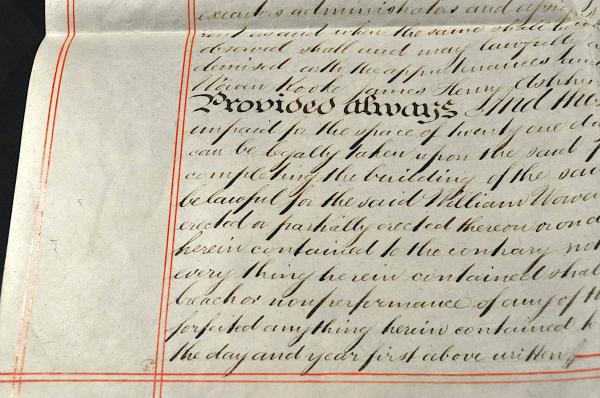 executors administrators and
rent as and when the same shall
deserved shall and may lawfully
demised with the appurtenances
Wowen Rooke James Henry
Provided always And the
unpaid for the space of twenty one da
can be legally taken upon the said
completing the building of the sai
be lawful for the said William Wowen
erected or partially erected thereon or on
herein contained to the contrary not
every thing herein contained shal
breach or nonperformance of any of th
forfeited anything herein contained to
the day and year first above written